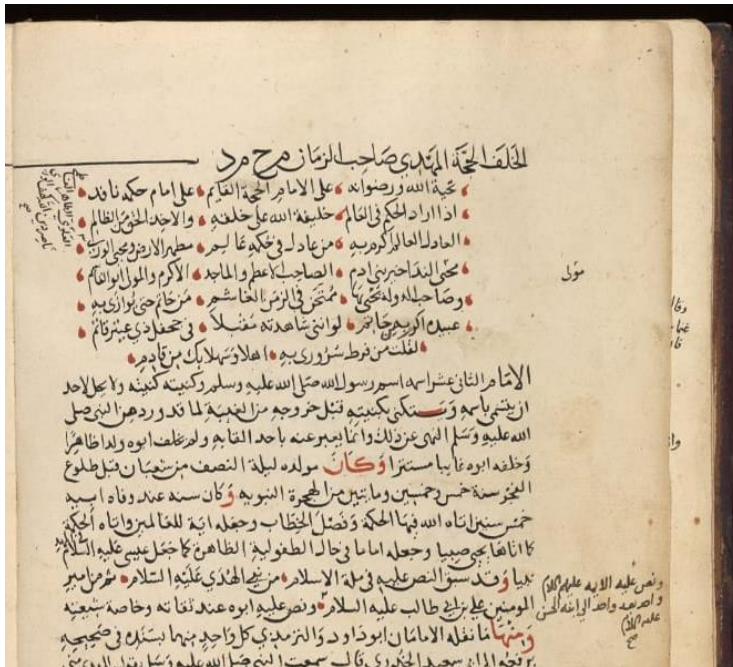 الخلف الحجة المهتدي صاحب الزمان م ح م د
تحية الله ورضوانه على الامام الحجة القايم على امام حكمه نافد
اذا اراد الحكم في العالم خليفة الله على خلقه والاخذ الحق من الظالم
العادل العالم اكرم به من عادل في حكمه عالم مطهر الارض ومحيي الورى
محيي الندا خير بني ادم الصاحب الاعظم والماجد الاكرم والمولى ابو القاسم
وصاحب الدولة يحيى بها ممتحن في الزمن الغاشم
عبيده لو انني شاهدته مقبلا في جحفل ذي عيثر قاتم
لقلت من فرط سروري به اهلا وسهلا بك من قادم
الامام الثاني عشر اسمه اسم رسول الله صلى الله عليه وسلم وكنيته كنيته ولا يحل لاحد
ان يتسمى باسمه ويستكنى بكنيته قبل خروجه من الغيبة لما قد ورد من النبي صلى
الله عليه وسلم النهي عن ذلك وانما يعبر عنه باحد القابه ولم يخلف ابوه ولدا ظاهرا
وخلفه ابوه غايبا مستترا وكان مولده ليلة النصف من شعبان قبل طلوع
الفجر سنة خمس وخمسين ومايتين من الهجرة النبويه وكان سنه عند وفاة ابيه
خمس سنين اتاه الله فيها الحكمة وفصل الخطاب وجعله اية للعالمين واتاه الحكمة
كما اتاها يحيى صبيا وجعله اماما في حال الطفولية الظاهرة كما جعل عيسى عليه السلام
نبيا وقد سبق النص عليه في ملة الاسلام من نبي الهدي عليه السلام ثم من امير
المومنين علي بن ابي طالب عليه السلام ونص عليه ابوه عند ثقاته وخاصة شيعته
ومنها ما نقله الامامان ابو داود والترمذي كل واحد منهما بسنده في صحيحه
يرفعه الى ابي سعيد الخدري قال سمعت النبي صلى الله عليه وسلم يقول المهدي مني
مولى
ونص عليه الايه عليهم السلام
واحد بعد واحد الى ابيه الحسن
عليه السلام
صح